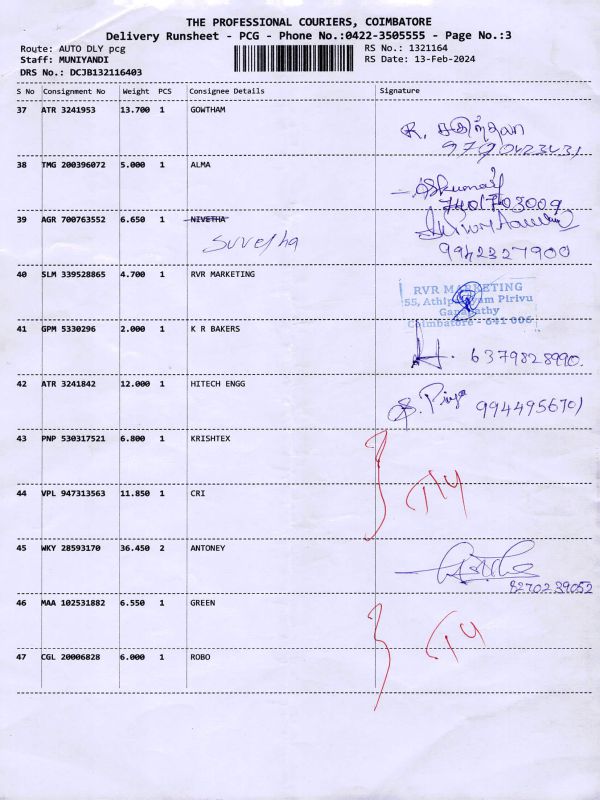 THE PROFESSIONAL COURIERS, COIMBATORE
Delivery Runsheet - PCG - Phone No.:0422-3505555 - Page No.:3
Route: AUTO DLY pcg RS No.: 1321164
Staff: MUNIYANDI RS Date: 13-Feb-2024
DRS No.: DCJB132116403
S No Consignment No Weight PCS Consignee Details Signature
37 ATR 3241953 13.700 1 GOWTHAM
R.
9790423431
38 TMG 200396072 5.000 1 ALMA
7401703009
39 AGR 700763552 6.650 1 NIVETHA
Suvetha
9942327900
40 SLM 339528865 4.700 1 RVR MARKETING
RVR MARKETING
55, Pirivu
Ganapathy
Coimbatore - 641 006
41 GPM 5330296 2.000 1 K R BAKERS
6379828990.
42 ATR 3241842 12.000 1 HITECH ENGG
Priya 9944956701
43 PNP 530317521 6.800 1 KRISHTEX
44 VPL 947313563 11.850 1 CRI
45 WKY 28593170 36.450 2 ANTONEY
8270239052
46 MAA 102531882 6.550 1 GREEN
47 CGL 20006828 6.000 1 ROBO